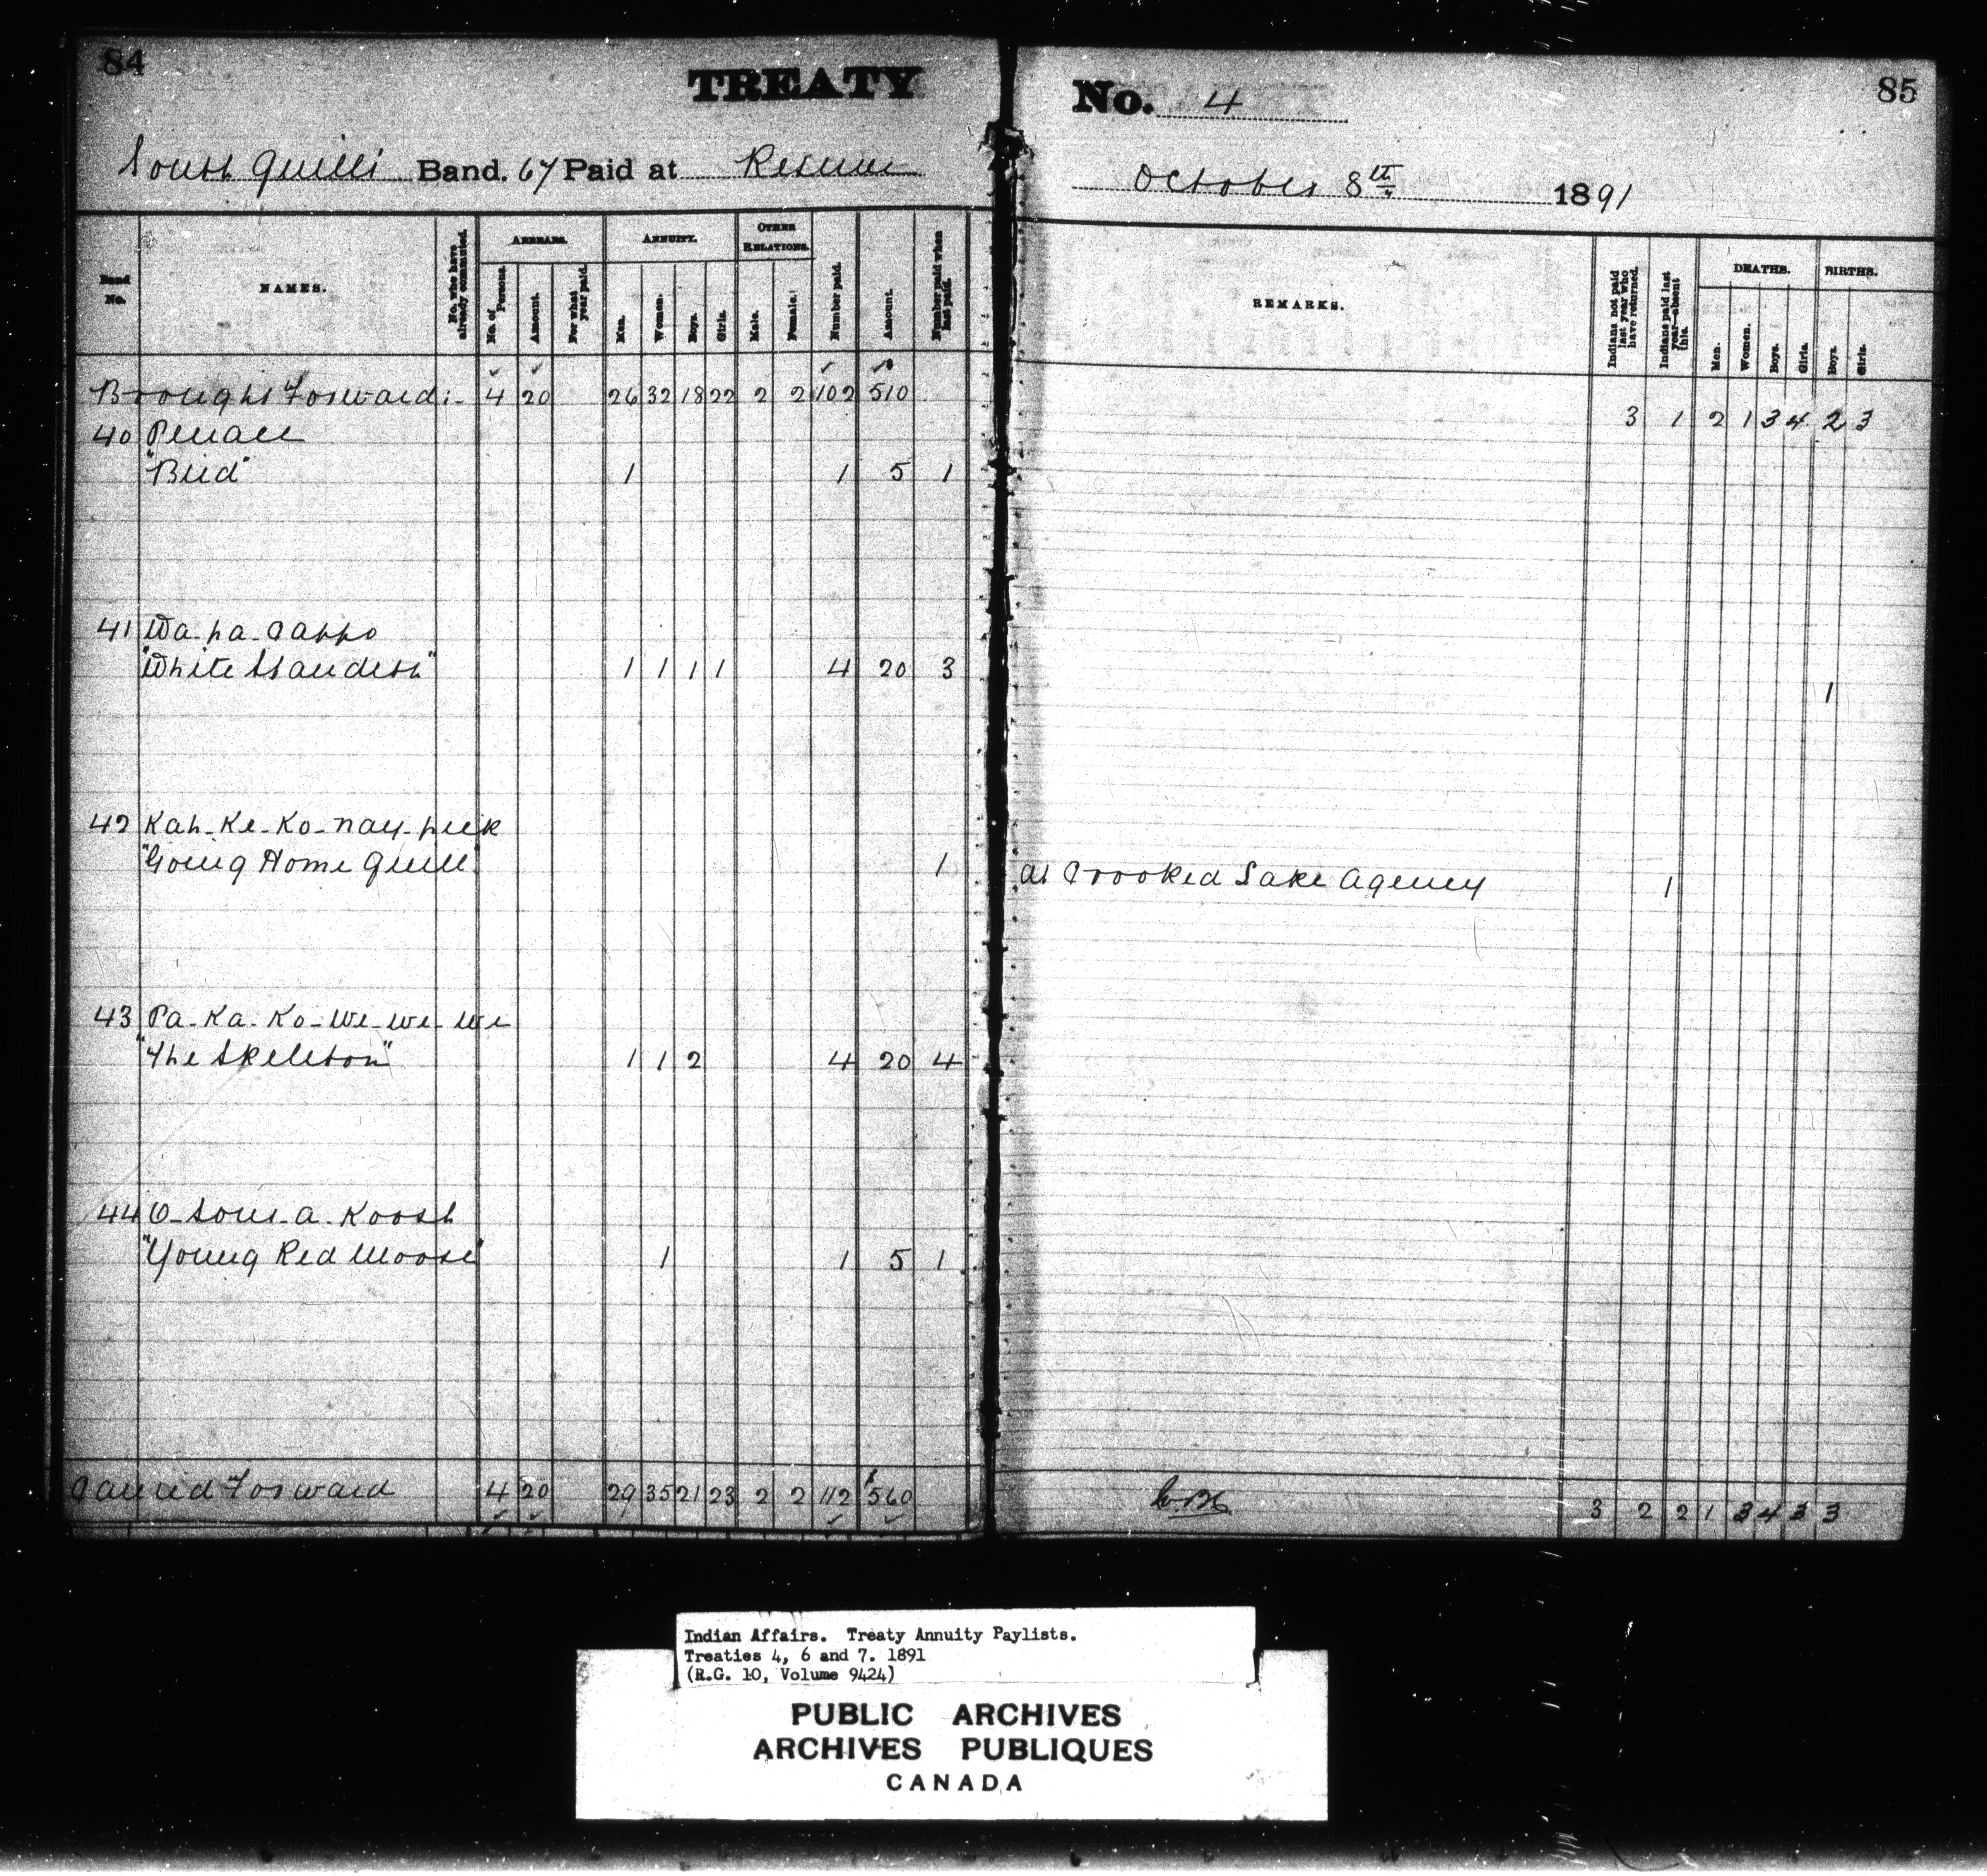 84
TREATY
No. 4
85
South Quill's Band. 67 Paid at Reserve
October 8th 1891
Band No.
NAMES.
No. who have already commuted.
ARREARS.
No. of Persons.
Amount.
For what year paid.
ANNUITY.
Men.
Women.
Boys.
Girls.
OTHER RELATIONS.
Male.
Female.
Number paid.
Amount.
Number paid when last paid.
REMARKS.
Indians not paid last year who have returned.
Indians paid last year—absent this.
DEATHS.
Men.
Women.
Boys.
Girls.
BIRTHS.
Boys.
Girls.
Brought Forward:- 4 20 26 32 18 22 2 2 102 510 3 1 2 1 3 4 2 3
40 Penace
"Bird" 1 1 5 1
41 Wa-pa-Cappo
"White Standern" 1 1 1 1 4 20 3 1
42 Kah-Ke-Ko-nay-peek
"Going Home Quill" 1 at Crooked Lake Agency 1
43 Pa-Ka-Ko-we-we-we
"The Skeleton" 1 1 2 4 20 4
44 O-sous-a-Koosh
"Young Red Moose" 1 1 5 1
Carried Forward 4 20 29 35 21 23 2 2 112 $560 3 2 2 1 3 4 3 3
Indian Affairs. Treaty Annuity Paylists.
Treaties 4, 6 and 7. 1891
(R.G. 10, Volume 9424)
PUBLIC ARCHIVES
ARCHIVES PUBLIQUES
CANADA